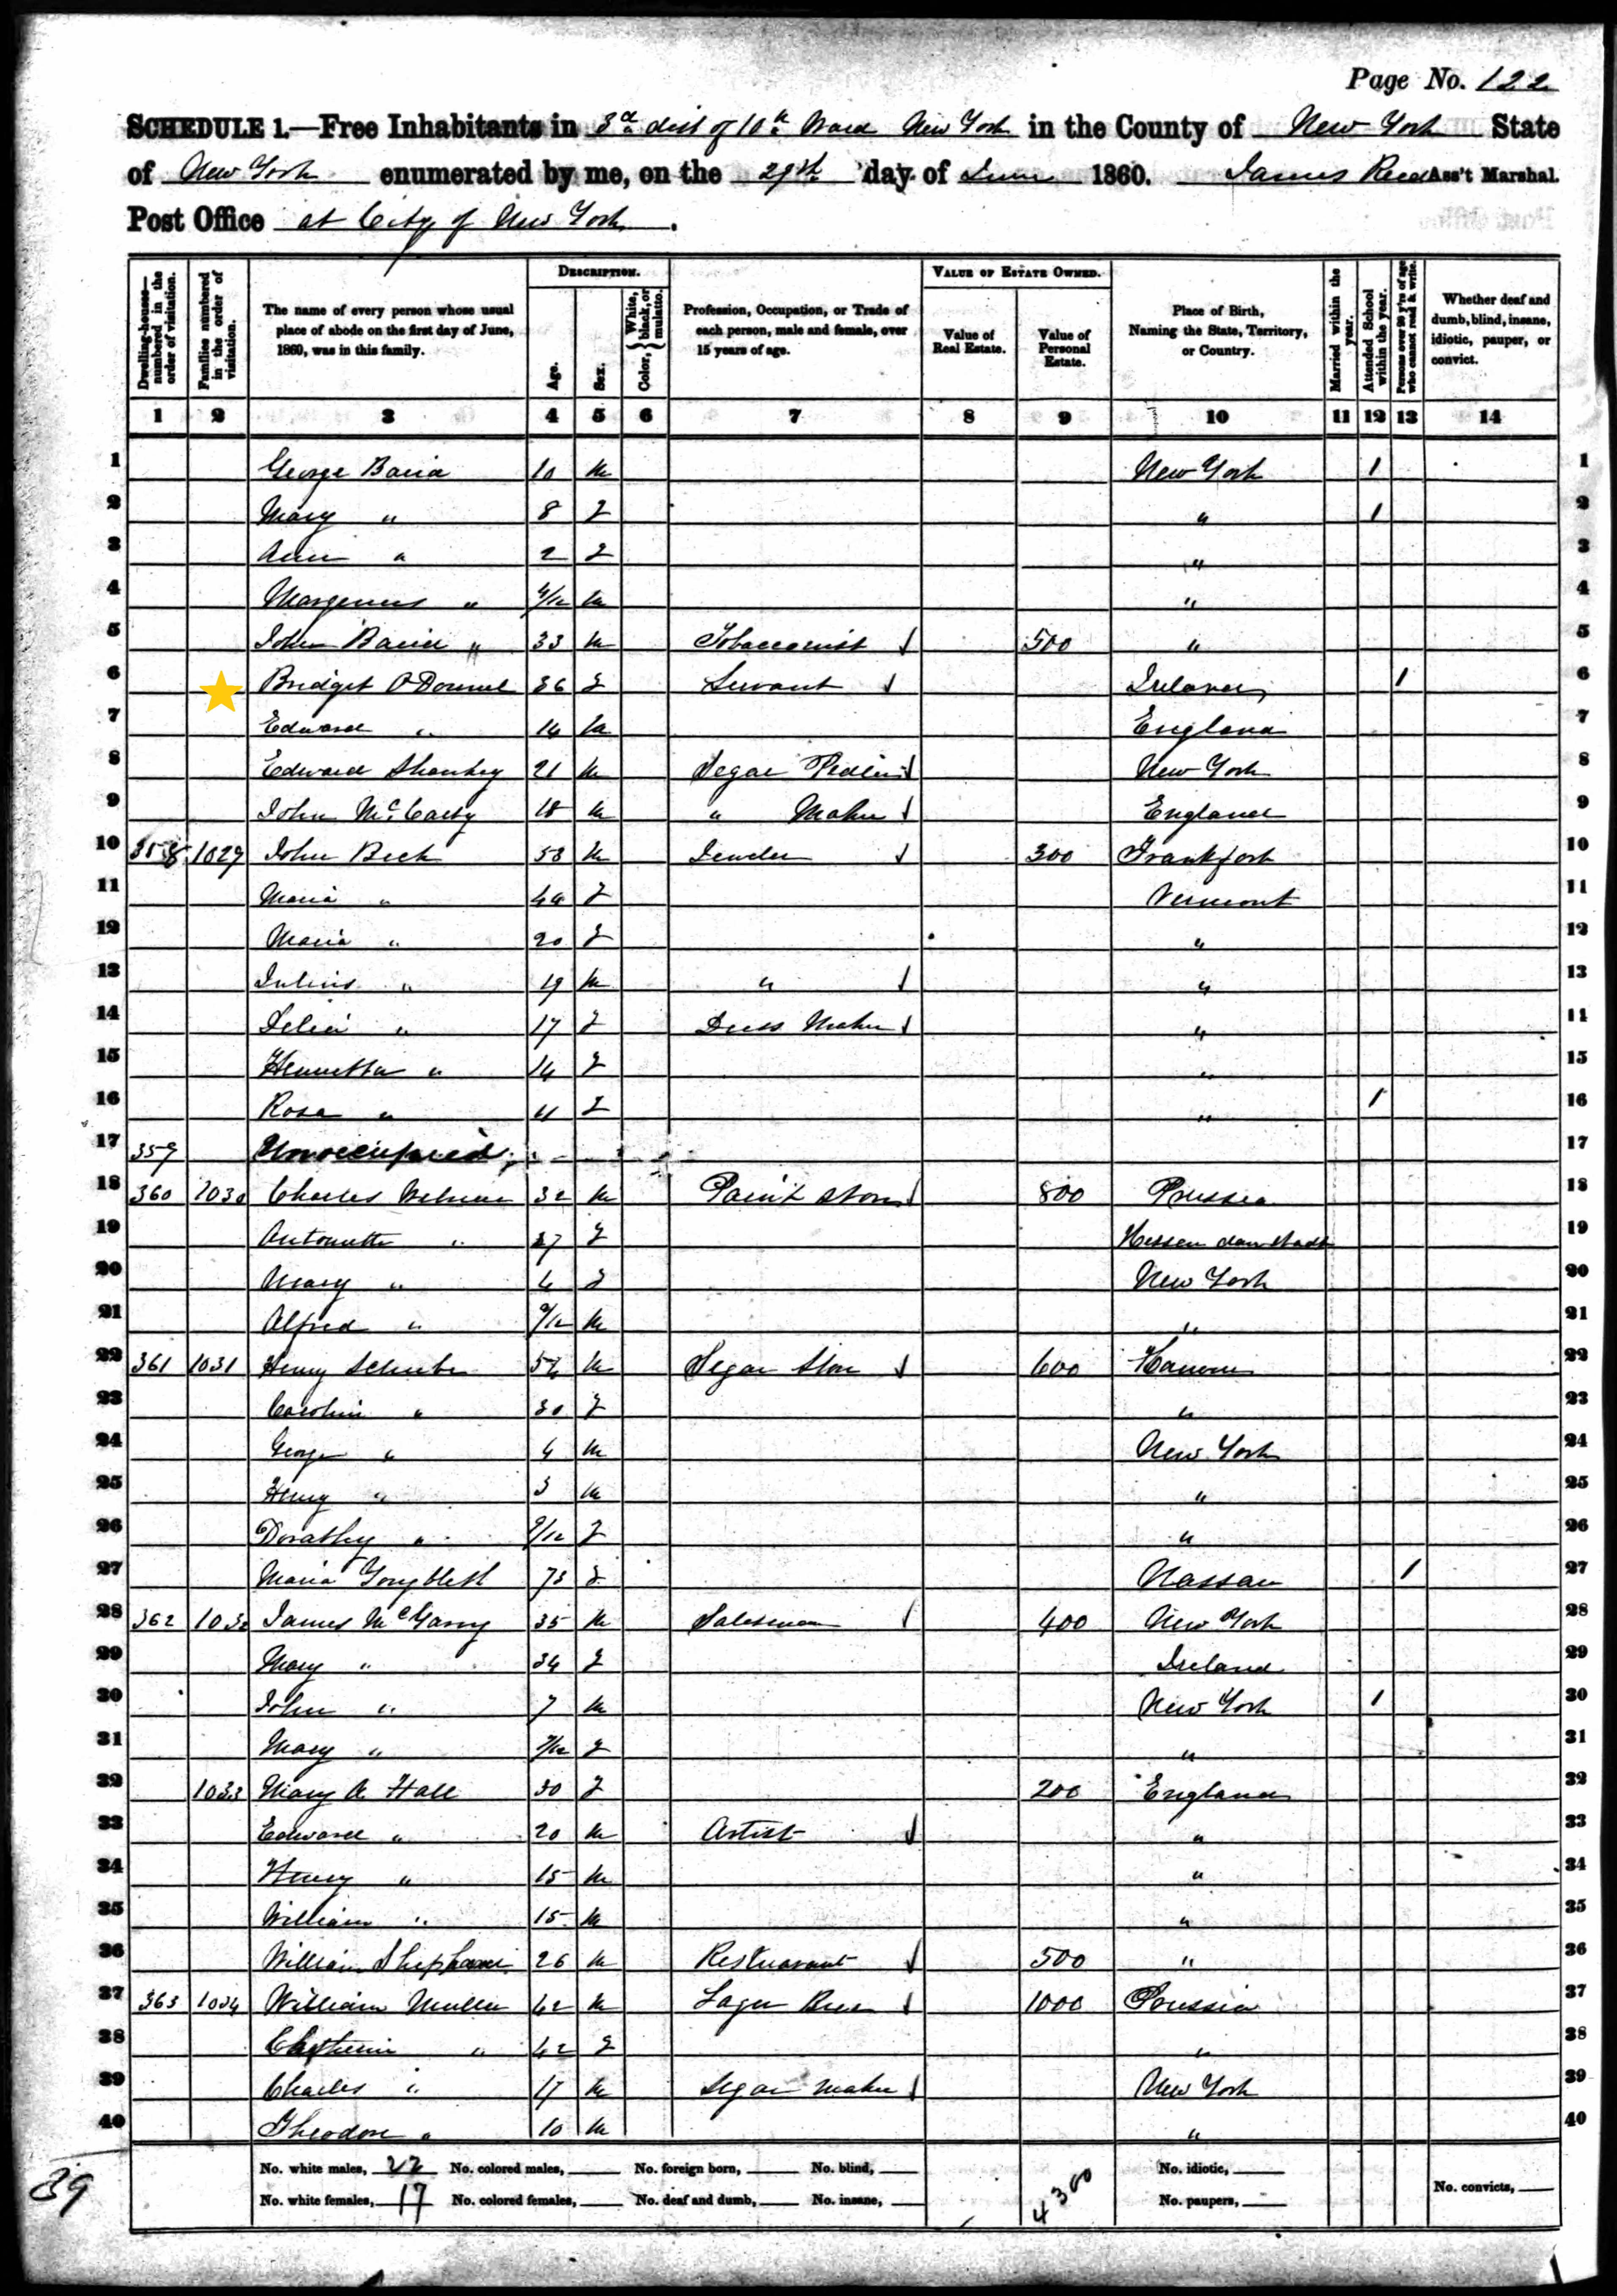 Page No. 122
SCHEDULE 1.—Free Inhabitants in 3d dist of 10th Ward New York in the County of New York State
of New York enumerated by me, on the 29th day of June 1860. James Reed Ass't Marshal.
Post Office at City of New York.
Dwelling-houses—numbered in the order of visitation.
Families numbered in the order of visitation.
The name of every person whose usual place of abode on the first day of June, 1860, was in this family.
DESCRIPTION.
Age.
Sex.
Color, { White, black, or mulatto.
Profession, Occupation, or Trade of each person, male and female, over 15 years of age.
VALUE OF ESTATE OWNED.
Value of Real Estate.
Value of Personal Estate.
Place of Birth, Naming the State, Territory, or Country.
Married within the year.
Attended School within the year.
Persons over 20 y'rs of age who cannot read & write.
Whether deaf and dumb, blind, insane, idiotic, pauper, or convict.
1 2 3 4 5 6 7 8 9 10 11 12 13 14
1 George 10 m New York 1 1
2 Mary " 8 f " 1 2
3 Ann " 2 f " 3
4 " m " 4
5 John 33 m Tobacconist 500 " 5
6 Bridget O Donnel 36 f Servant Ireland 1 6
7 Edward " 14 m England 7
8 Edward Shankey 21 m Segar New York 8
9 John McCarty 18 m " Maker England 9
10 358 1029 John Beck 53 m Jeweler 300 Frankfort 10
11 Maria " 44 f Vermont 11
12 Maria " 20 f " 12
13 Julius " 19 m " " 13
14 " 17 f Dress Maker " 14
15 Henrietta " 14 f " 15
16 Rosa " 11 f " 1 16
17 359 Unoccupied 17
18 360 1030 Charles 32 m Paint store 800 Prussia 18
19 " 27 f Hessen darmstadt 19
20 Mary " 4 f New York 20
21 Alfred " 9/12 m " 21
22 361 1031 Henry 54 m Segar Store 600 Hanover 22
23 " 30 f " 23
24 George " 4 m New York 24
25 Henry " 3 m " 25
26 Dorathy " 9/12 f " 26
27 Maria 73 f Nassau 1 27
28 362 1032 James McGarry 35 m Salesman 400 New York 28
29 Mary " 34 f Ireland 29
30 John " 7 m New York 1 30
31 Mary " f " 31
32 1033 Mary A. Hall 50 f 200 England 32
33 Edward " 20 m Artist " 33
34 Henry " 15 m " 34
35 William " 15 m " 35
36 William 26 m Restuarant 500 " 36
37 363 1034 William Muller 42 m Lager Beer 1000 Prussia 37
38 " 42 f " 38
39 Charles " 17 m Segar maker New York 39
40 Theodore " 10 m " 40
No. white males, 22 No. colored males, No. foreign born, No. blind, No. idiotic,
No. white females, 17 No. colored females, No. deaf and dumb, No. insane, 4300 No. paupers, No. convicts,
39